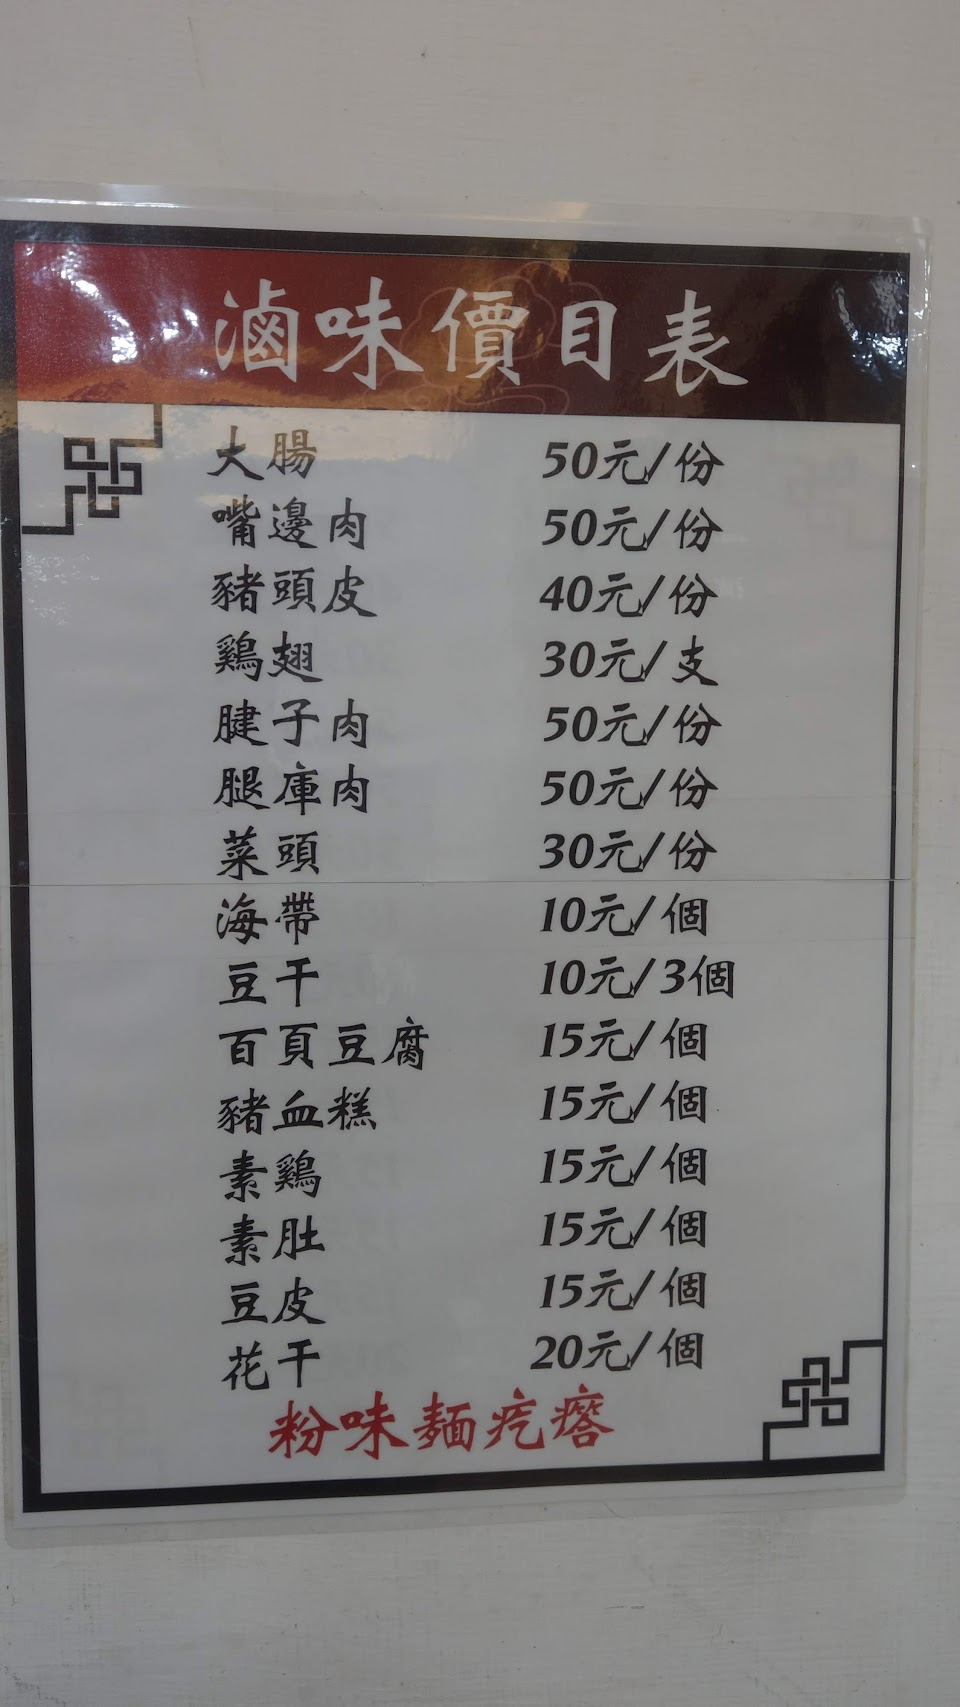 滷味價目表
大腸 50元/份
嘴邊肉 50元/份
豬頭皮 40元/份
鷄翅 30元/支
腱子肉 50元/份
腿庫肉 50元/份
菜頭 30元/份
海帶 10元/個
豆干 10元/3個
百頁豆腐 15元/個
豬血糕 15元/個
素鷄 15元/個
素肚 15元/個
豆皮 15元/個
花干 20元/個
粉味麵疙瘩